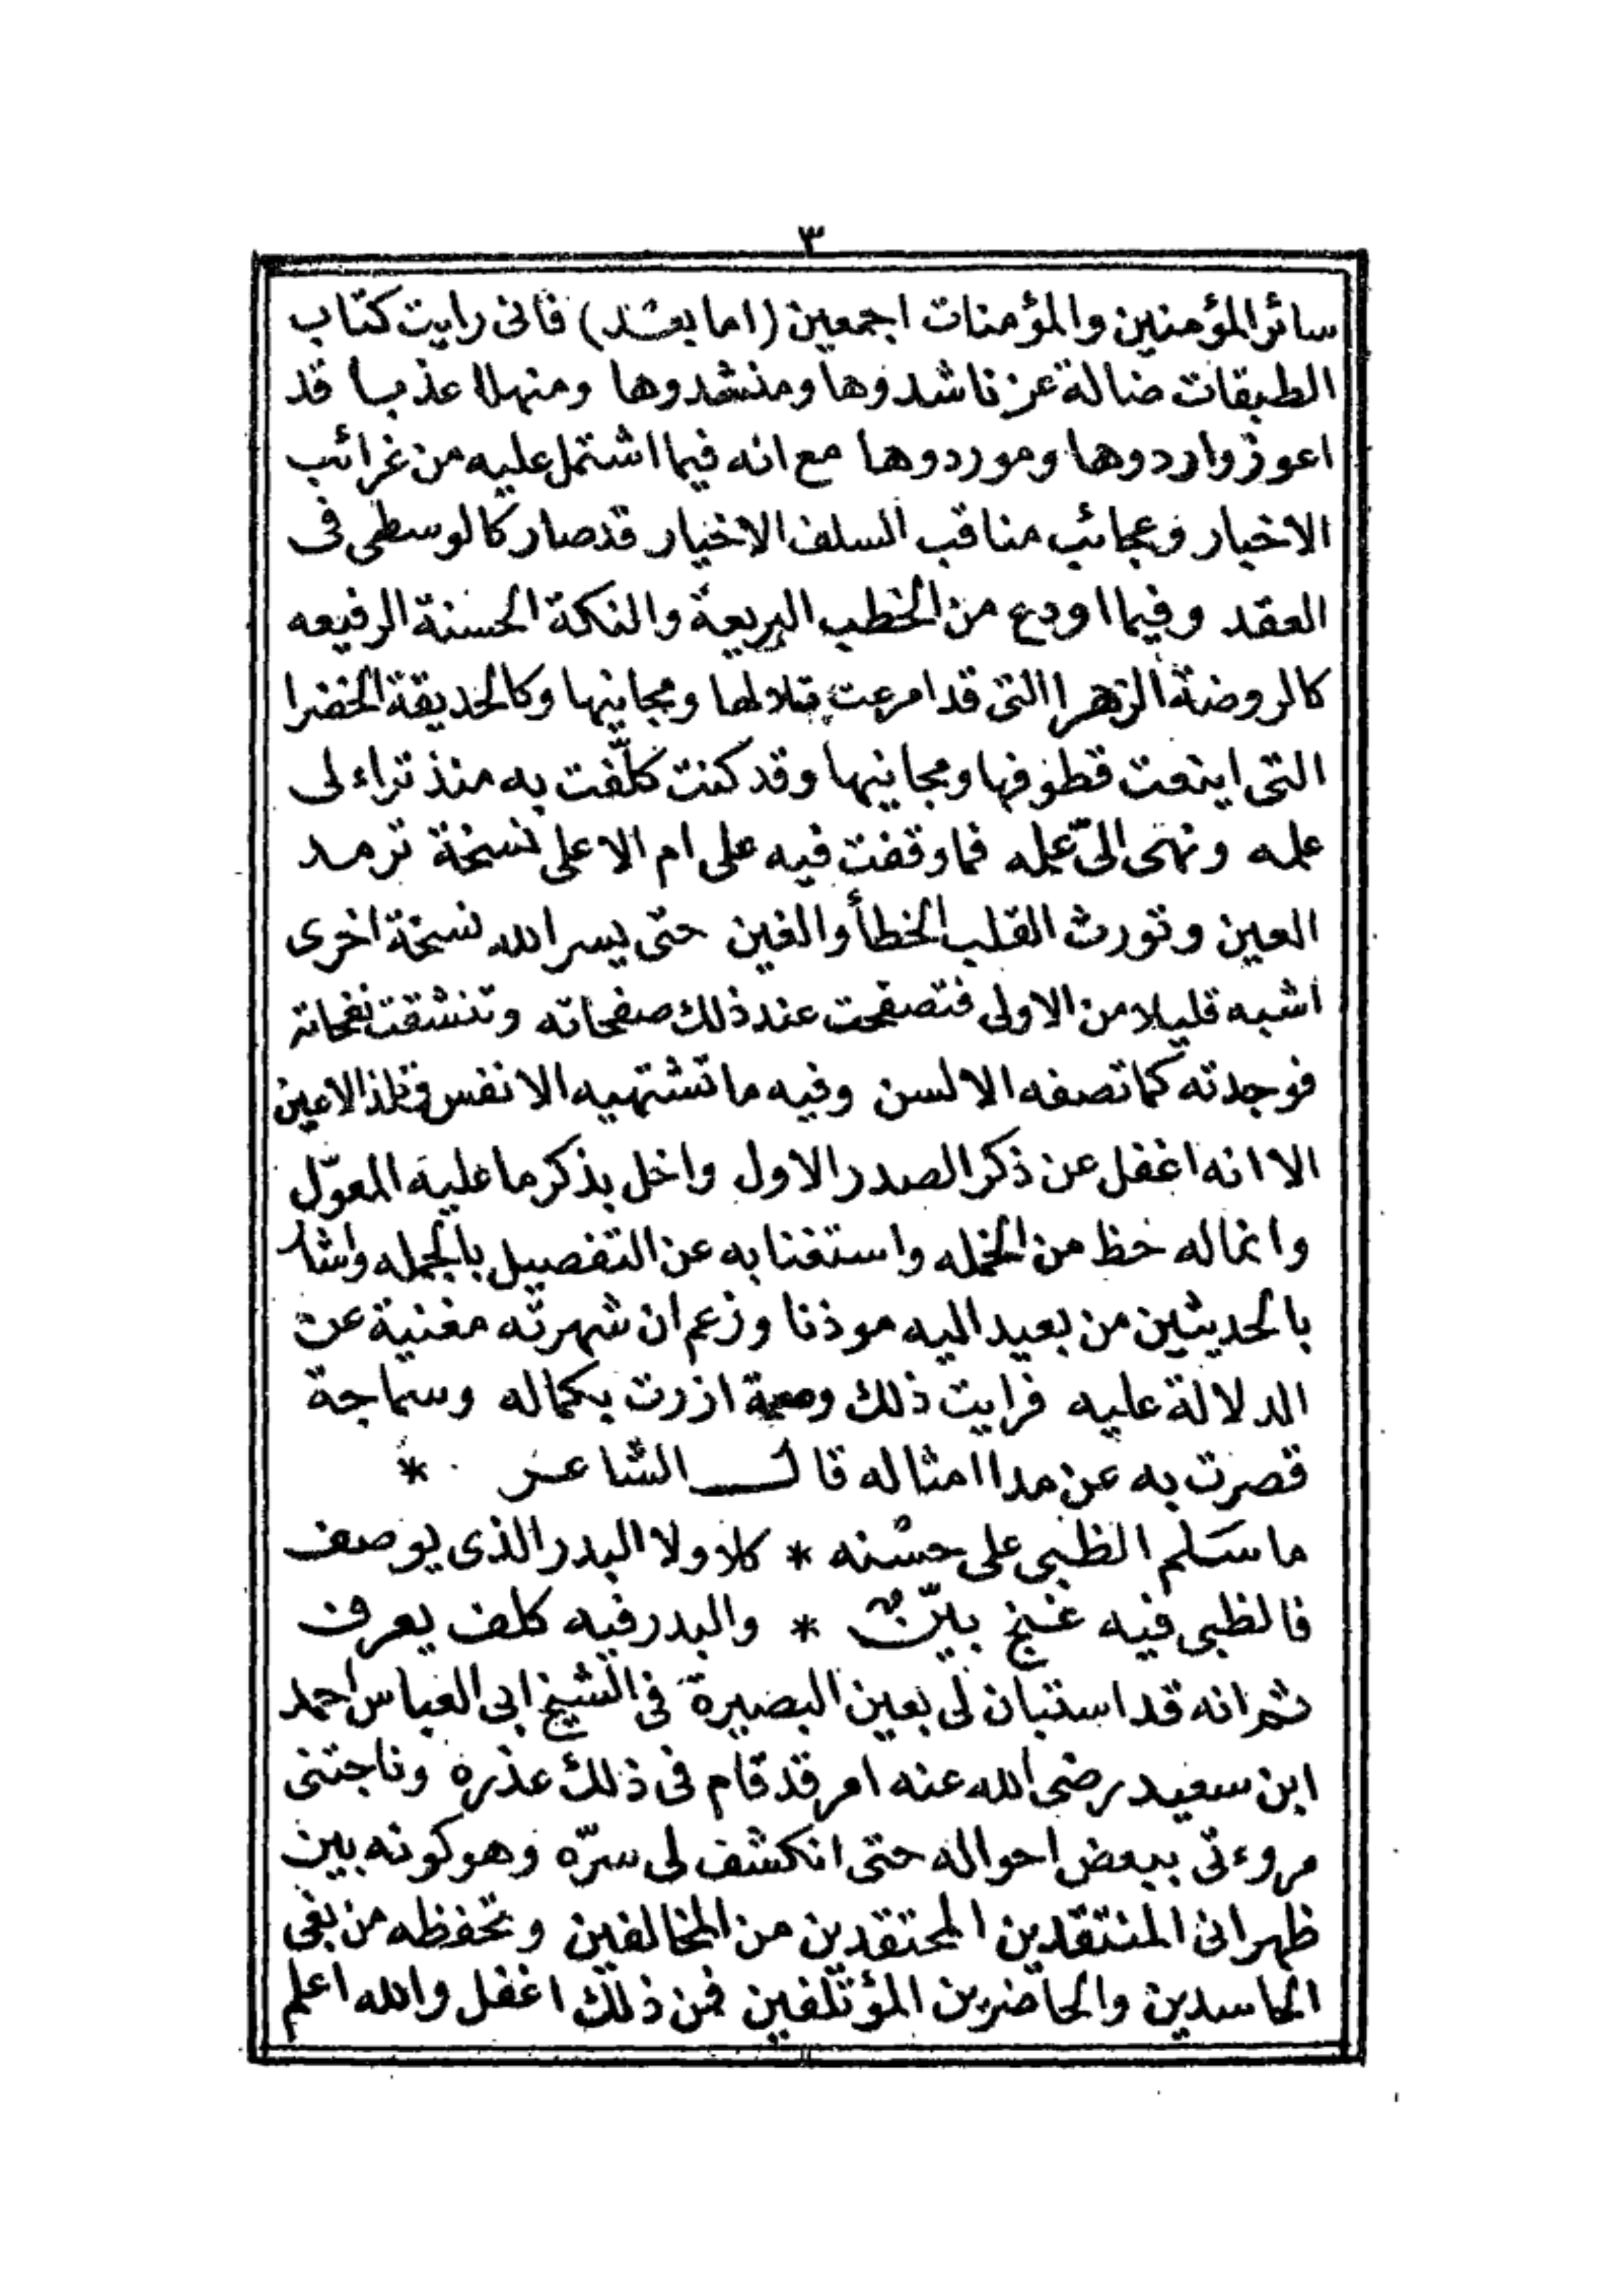 ٣
سائر المؤمنين والمؤمنات اجمعين (اما بعد) فانى رايت كتاب
الطبقات ضالة عز ناشدوها ومنشدوها ومنهلا عذبا قد
اعوز واردوها وموردوها مع انه فيما اشتمل عليه من غرائب
الاخبار وعجائب مناقب السلف الاخيار قد صار كالوسطى فى
العقد وفيما اودع من الخطب البريعة والنكة الحسنة الرفيعه
كالروضة الزهرا التى قد امرعت تلالها ومجانيها وكالحديقة الخضرا
التى اينعت قطوفها ومجانيها وقد كنت كلّفت به منذ تراء لى
علمه ونهى الىّ عمله فما وقفت فيه على ام الا على نسخة ترمد
العين وتورث القلب الخطأ والغين حتى يسر الله نسخة اخرى
اشبه قليلا من الاولى فتصفحت عند ذلك صفحاته وتنشقت نفحاته
فوجدته كما تصفه الالسن وفيه ما تشتهيه الانفس وتلذ الاعين
الا انه اغفل عن ذكر الصدر الاول واخل بذكر ما عليه المعوّل
وانما له حظ من الخمله واستغنا به عن التفصيل بالجمله واشار
بالحديثين من بعيد اليه موذنا وزعم ان شهرته مغنية عن
الدلالة عليه فرايت ذلك وصمة ازرت بكماله وسماجة
قصرت به عن مدا امثاله قال الشاعر *
ما سَلم الظبى على حسْنه * كلا ولا البدر الذى يوصف
فالظبى فيه غنج بيّنٌ * والبدر فيه كلف يعرف
ثم انه قد استبان لى بعين البصيرة فى الشيخ ابى العباس احمد
ابن سعيد رضى الله عنه امر قد قام فى ذلك عذره وناجتنى
مروءتى ببعض احواله حتى انكشف لى سرّه وهو كونه بين
ظهرانى المنتقدين المحتقدين من المخالفين وتحفظه من بغى
الحاسدين والحاضرين المؤتلفين فمن ذلك اغفل والله اعلم